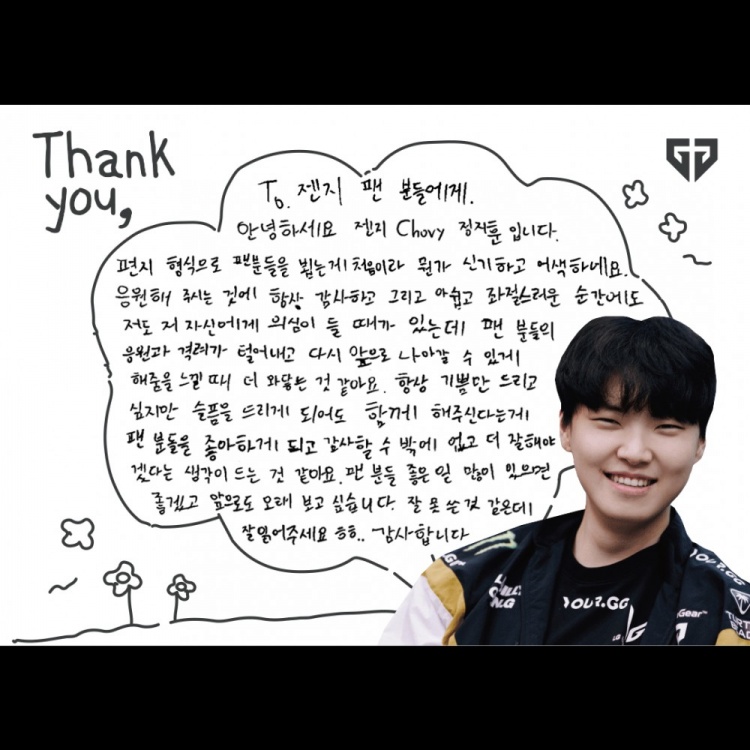 Thank
you,
To. 젠지 팬 분들에게.
안녕하세요 젠지 Chovy 정지훈 입니다.
편지 형식으로 팬분들을 뵙는게 처음이라 뭔가 신기하고 어색하네요.
응원해 주시는 것에 항상 감사하고 그리고 아쉽고 좌절스러운 순간에도
저도 저 자신에게 의심이 들 때가 있는데 팬 분들의
응원과 격려가 털어내고 다시 앞으로 나아갈 수 있게
해줌을 느낄 때 더 와닿는 것 같아요. 항상 기쁨만 드리고
싶지만 슬픔을 드리게 되어도 함께 해주신다는게
팬 분들을 좋아하게 되고 감사할 수 밖에 없고 더 잘해야
겠다는 생각이 드는 것 같아요. 팬 분들 좋은 일 많이 있으면
좋겠고 앞으로도 오래 보고 싶습니다. 잘 못 쓴 것 같은데
잘읽어주세요 ㅎㅎ.. 감사합니다
YOUR.GG
OUR.GG
Gear
LG